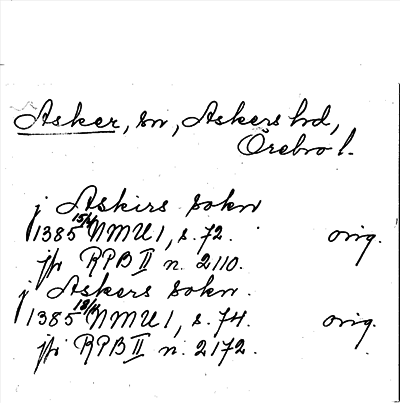 Asker, sn, Askers hd,
Örebro l.
j Askirs sokn
1385 15/4 NMU 1, s. 72. orig.
jfr RPB II n. 2110.
j Askers sokn.
1385 NMU 1, s. 74. orig.
jfr RPB II n. 2172.